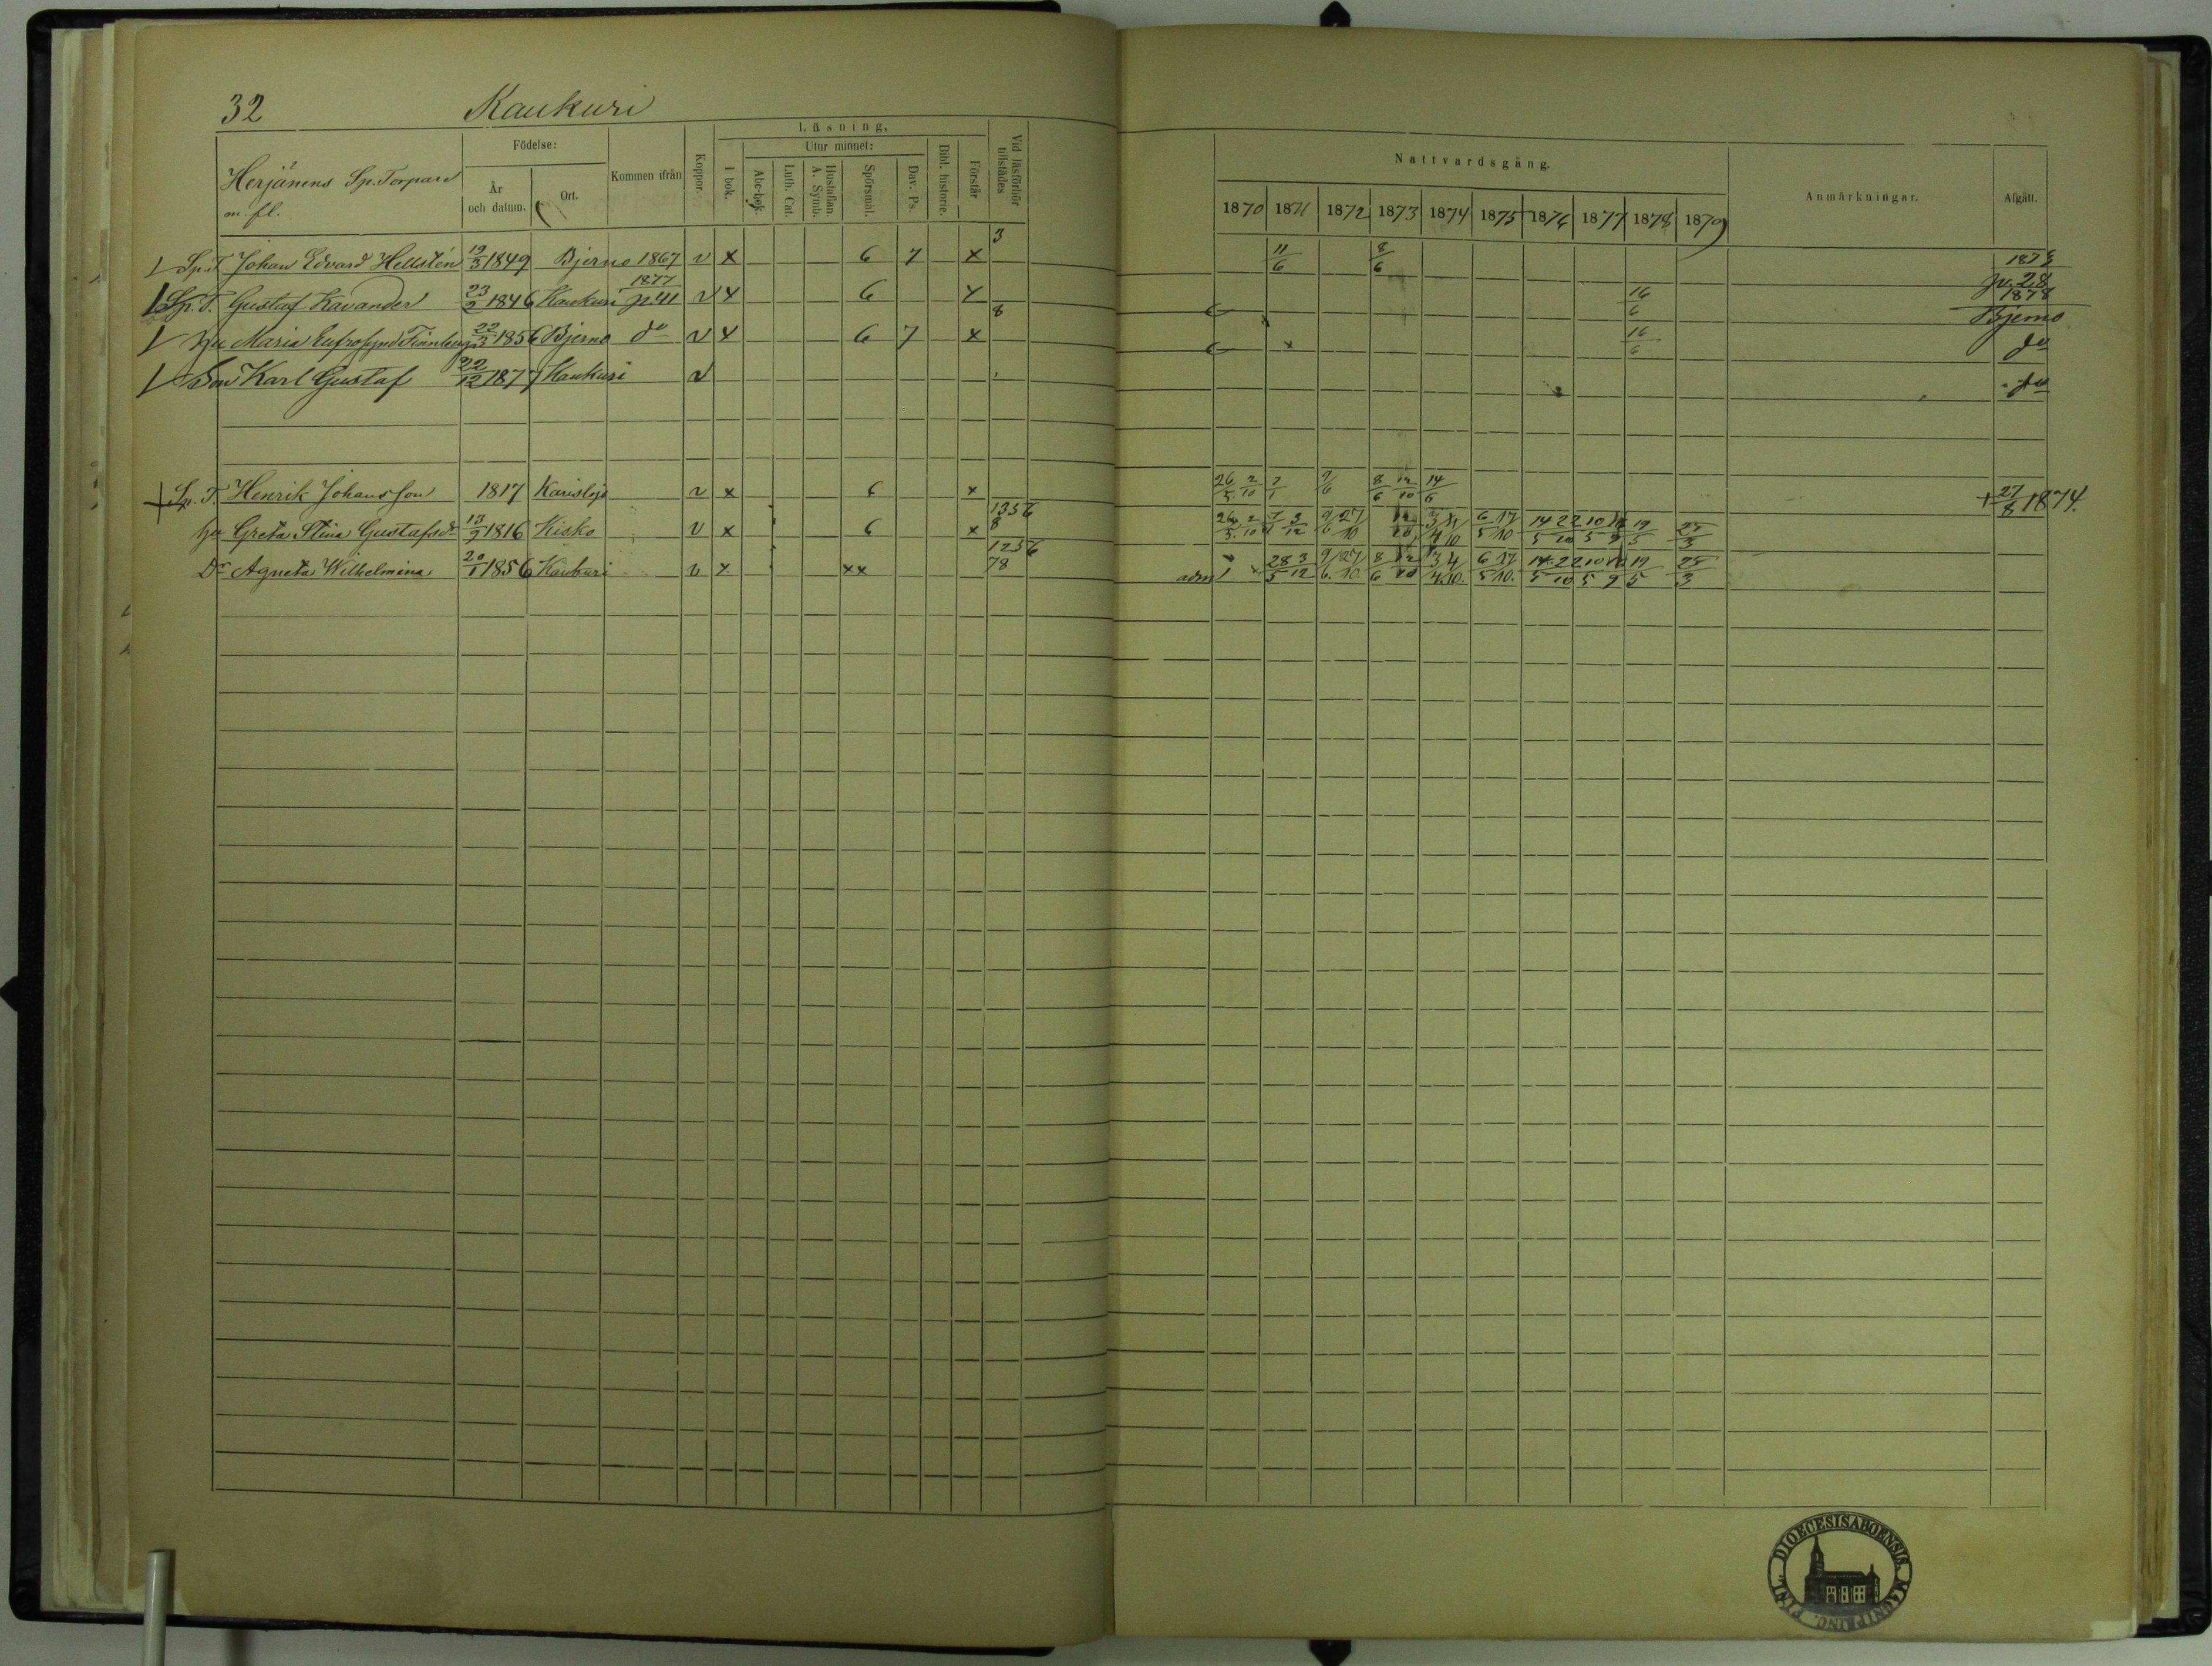 32 Kaukuri
Herjänens Sp. Torpare
m. fl.
Födelse:
År och datum.
Ort.
Kommen ifrån
Koppor.
Läsning,
I bok.
Utur minnet:
Abc-bok.
Luth. Cat.
Hustaflan. A. Symb.
Spörsmål.
Dav. Ps.
Bibl. historie.
Förstår
Vid läsförhör tillstädes
Nattvardsgång.
1870 1871 1872 1873 1874 1875 1876 1877 1878 1879
Anmärkningar.
Afgått.
Sp. T. Johan Edvard Hellstén 19/3 1849 Bjerno 1867 v x 6 7 x 3 11/6 8/6 1878 p. 28
Sp. T. Gustaf Kavander 23/2 1846 Kaukuri 1877 p. 41 v x 6 x 8 16/6 1878 Bjerno
Hu Maria Eufrosyne 1856 Bjerno do v x 6 7 x 16/6 do
Son Karl Gustaf 22/12 1877 Kaukuri v do
+ Sp. T. Henrik Johansson 1817 Karislojo v x 6 x 26/5 2/10 7/1 9/6 8/6 12/10 14/6 + 27/8 1874.
Hu Greta Stina Gustafsdr 13/9 1816 Kisko v x 6 x 1356 8 26/5 2/10 9/6 27/10 12/10 6/5 17/10 14/5 22/10 10/5 19/5 25/3
Dr Agneta Wilhelmina 20/1 1856 Kaukuri v x xx 1256 78 adm 28/5 3/12 9/6 27/10 8/6 12/10 6/5 17/10 14/5 22/10 10/5 19/5 25/3
DIOECESIS ABOENSIS MAGNI PRINC. FINL.